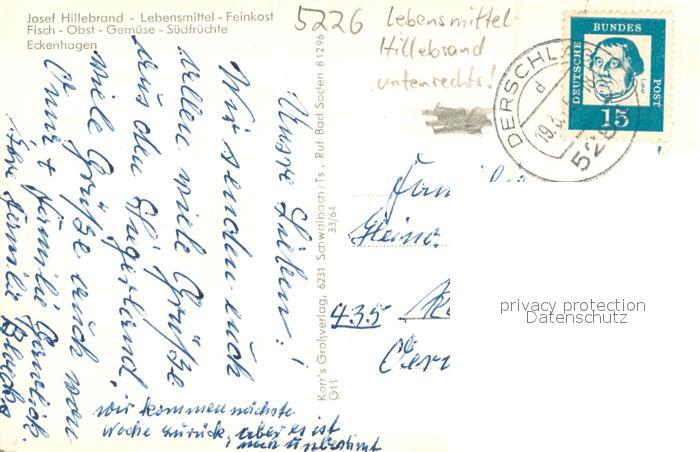 Josef Hillebrand - Lebensmittel - Feinkost
Fisch - Obst - Gemüse - Südfrüchte
Eckenhagen
5226
Lebensmittel
Hillebrand
unten rechts!
DEUTSCHE
BUNDES
POST
Luther
15
DERSCHL
d
19.
528
Unsre Lieben!
Wir senden euch
allen viele Grüße
aus den Sügerland,
viele Grüße auch von
Omi + Familie
Ihre Familie
wir kommen nächste
Woche zurück, aber es ist
noch unbestimt
Korr's Großverlag, 6231 Schwalbach/Ts. Ruf Bad Soden 81296
33/64
G11
Fam
Heinr.
435
privacy protection
Datenschutz